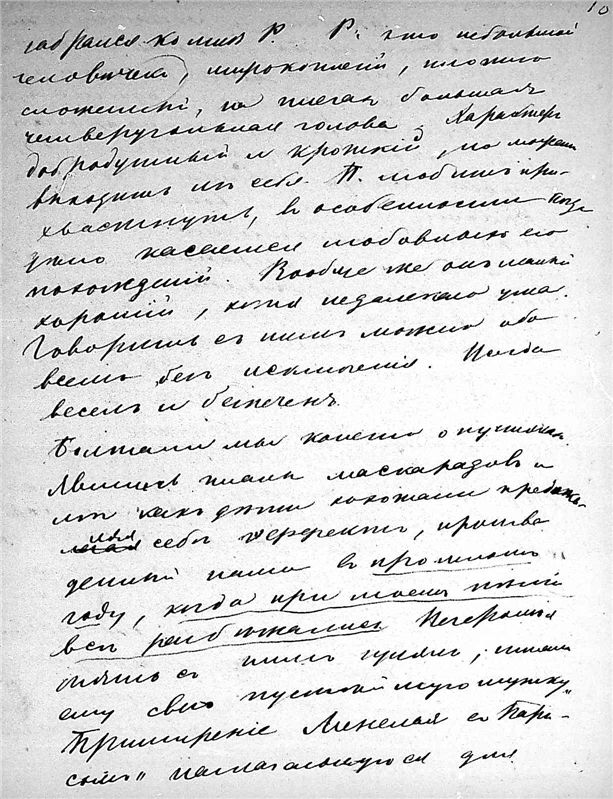 10
забрался ко мне Р. Р. это небольшой
человечек, широкоплечій, плотно
сложенный, на плечах большая
четвероугольная голова. Характер
добродушный и кроткій, но можетъ
выходить изъ себя. П. любитъ при-
хвастнуть, въ особенности когда
дѣло касается любовныхъ его
похожденій. Вообще же онъ малый
хорошій, хотя недалекаго ума.
Говорить съ нимъ можно обо
всемъ безъ исключенія. Всегда
веселъ и безпеченъ.
Болтали мы конечно о пустякахъ
Явились планы маскарадовъ и
мы какъ дѣти хохотали представ-
ляя себѣ эффектъ, произве
денный нами въ прошломъ
году, когда при моемъ пѣніи
всѣ разбѣжались. Вечеромъ
опять съ нимъ гуляли, читали
ему свою пустѣйшую шутку
"Примиреніе Менелая съ Пари-
сомъ" для